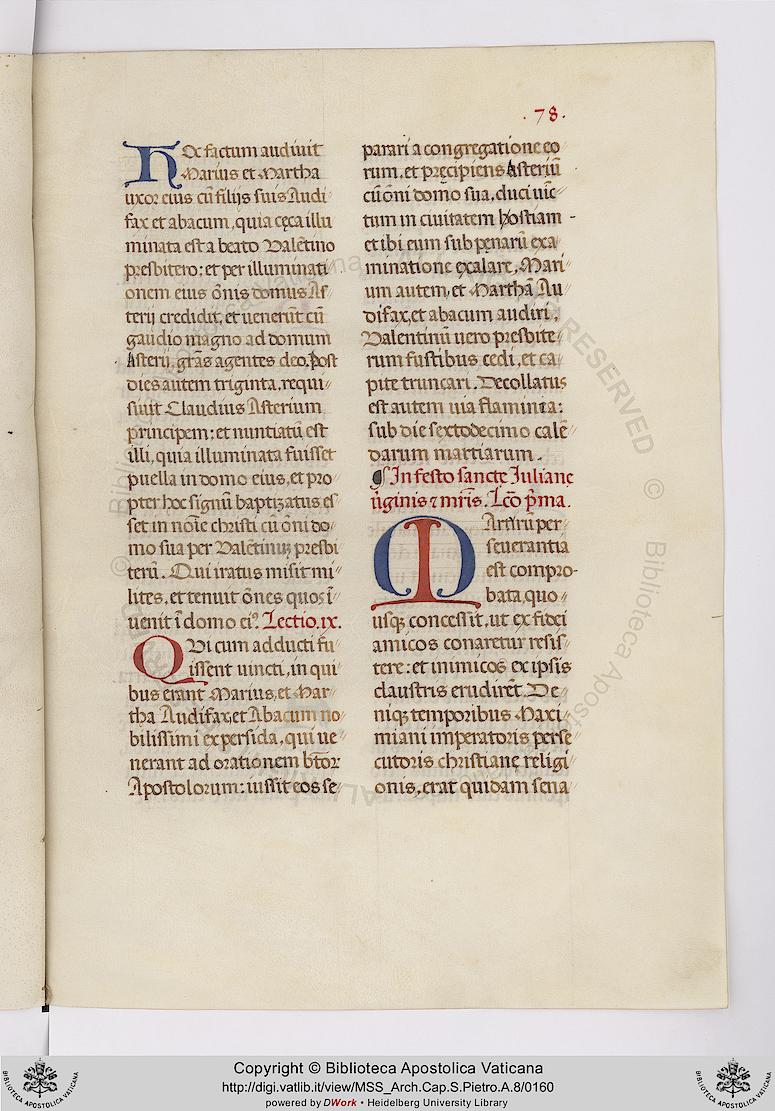 .78.
Hoc factum audiuit
Marius et Martha
uxor eius cū filijs suis Audi
fax et abacum, quia cęca illu
minata est a beato Valētino
presbitero: et per illuminati
onem eius ōnis domus As
terij credidit, et uenerūt cū
gaudio magno ad domum
Asterij, grās agentes deo. Post
dies autem triginta, requi
siuit Claudius Asterium
principem: et nuntiatū est
illi, quia illuminata fuisset
puella in domo eius, et pro
pter hoc signū baptizatus es
set in noīe christi cū ōni do
mo sua per Valētinuȝ presbi
terū. Qui iratus misit mi
lites, et tenuit ōnes quos ī
uenit ī domo eiꝰ. Lectio .ix.
QVi cum adducti fu
issent uincti, in qui
bus erant Marius, et Mar
tha Audifax, et Abacum no
bilissimi ex persida, qui ue
nerant ad orationem btōr
Apostolorum: iussit eos se
parari a congregatione eo
rum, et pręcipiens Asteriū
cū ōni domo sua, duci uīc
tum in ciuitatem hostiam
et ibi eum sub pęnarū exa
minatione exalare, Mari
um autem, et Marthā Au
difax, et abacum audiri,
Valentinū uero presbite
rum fustibus cedi, et ca
pite truncari. Decollatus
est autem uia flaminia:
sub die sextodecimo calē
darum martiarum.
¶ In festo sancte Iuliane
ūginis ⁊ mr̄is. Lcō p̄ma.
MArtirū per
seuerantia
est compro-
bata, quo
usqꝫ concessit, ut ex fidei
amicos conaretur resis
tere: et inimicos ex ipsis
claustris erudirēt. De
niqꝫ temporibus Maxi
miani imperatoris perse
cutoris christianę religi
onis, erat quidam sena
Copyright © Biblioteca Apostolica Vaticana
http://digi.vatlib.it/view/MSS_Arch.Cap.S.Pietro.A.8/0160
powered by DWork • Heidelberg University Library
BIBLIOTECA APOSTOLICA VATICANA
BIBLIOTECA APOSTOLICA VATICANA